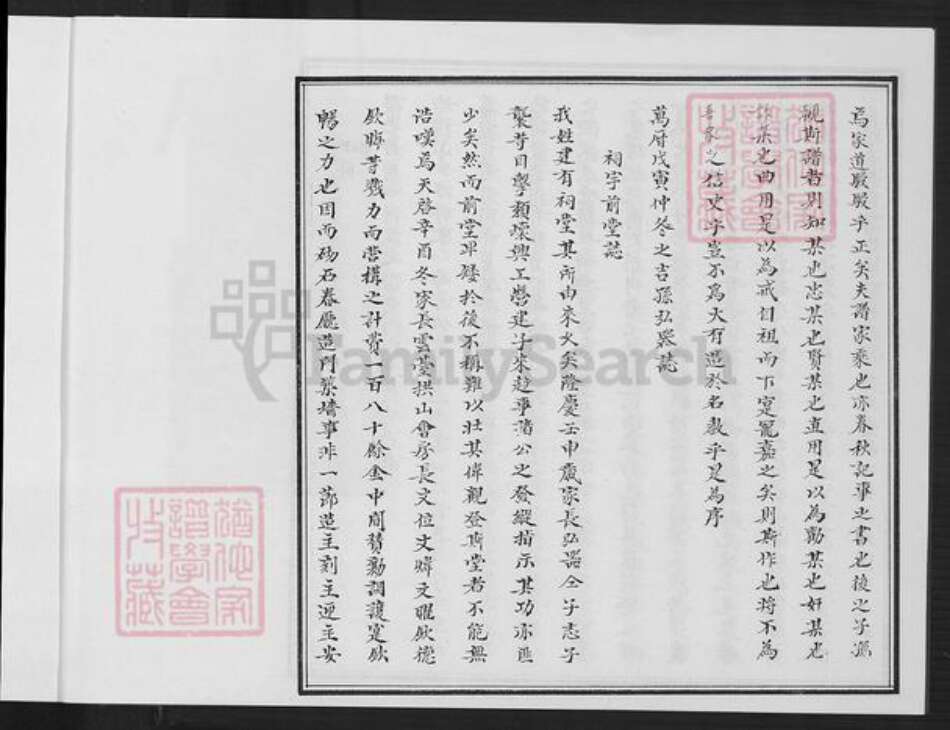 焉家道駸駸乎正矣夫譜家乘也亦春秋記事之書也後之子孫
覩斯譜者則知某也忠某也賢某也直用是以為勸某也奸某也
詐某也曲用是以為戒自祖而下寔寵嘉之矣則斯作也將不為
吾家之信史乎豈不為大有造於名教乎是為序
萬曆戊寅仲冬之吉孫弘器誌
祠宇前堂誌
我姓建有祠堂其所由來久矣隆慶壬申歲家長弘器仝子志子
襲等目擊頹壞興工營建子來趍事諸公之發縱指示其功亦匪
少矣然而前堂卑矮於後不稱難以壯其偉觀登斯堂者不能無
浩嘆焉天啓辛酉冬家長雲臺拱山會房長文位文暐文曜欽德
欽晦等戮力而營構之計費一百八十餘金中間贊勷調護寔欽
暢之力也因而砌石卷廳造門築墻事非一節造主刻主迎主安
猶他家譜學會收藏
猶他家譜學會收藏
FamilySearch